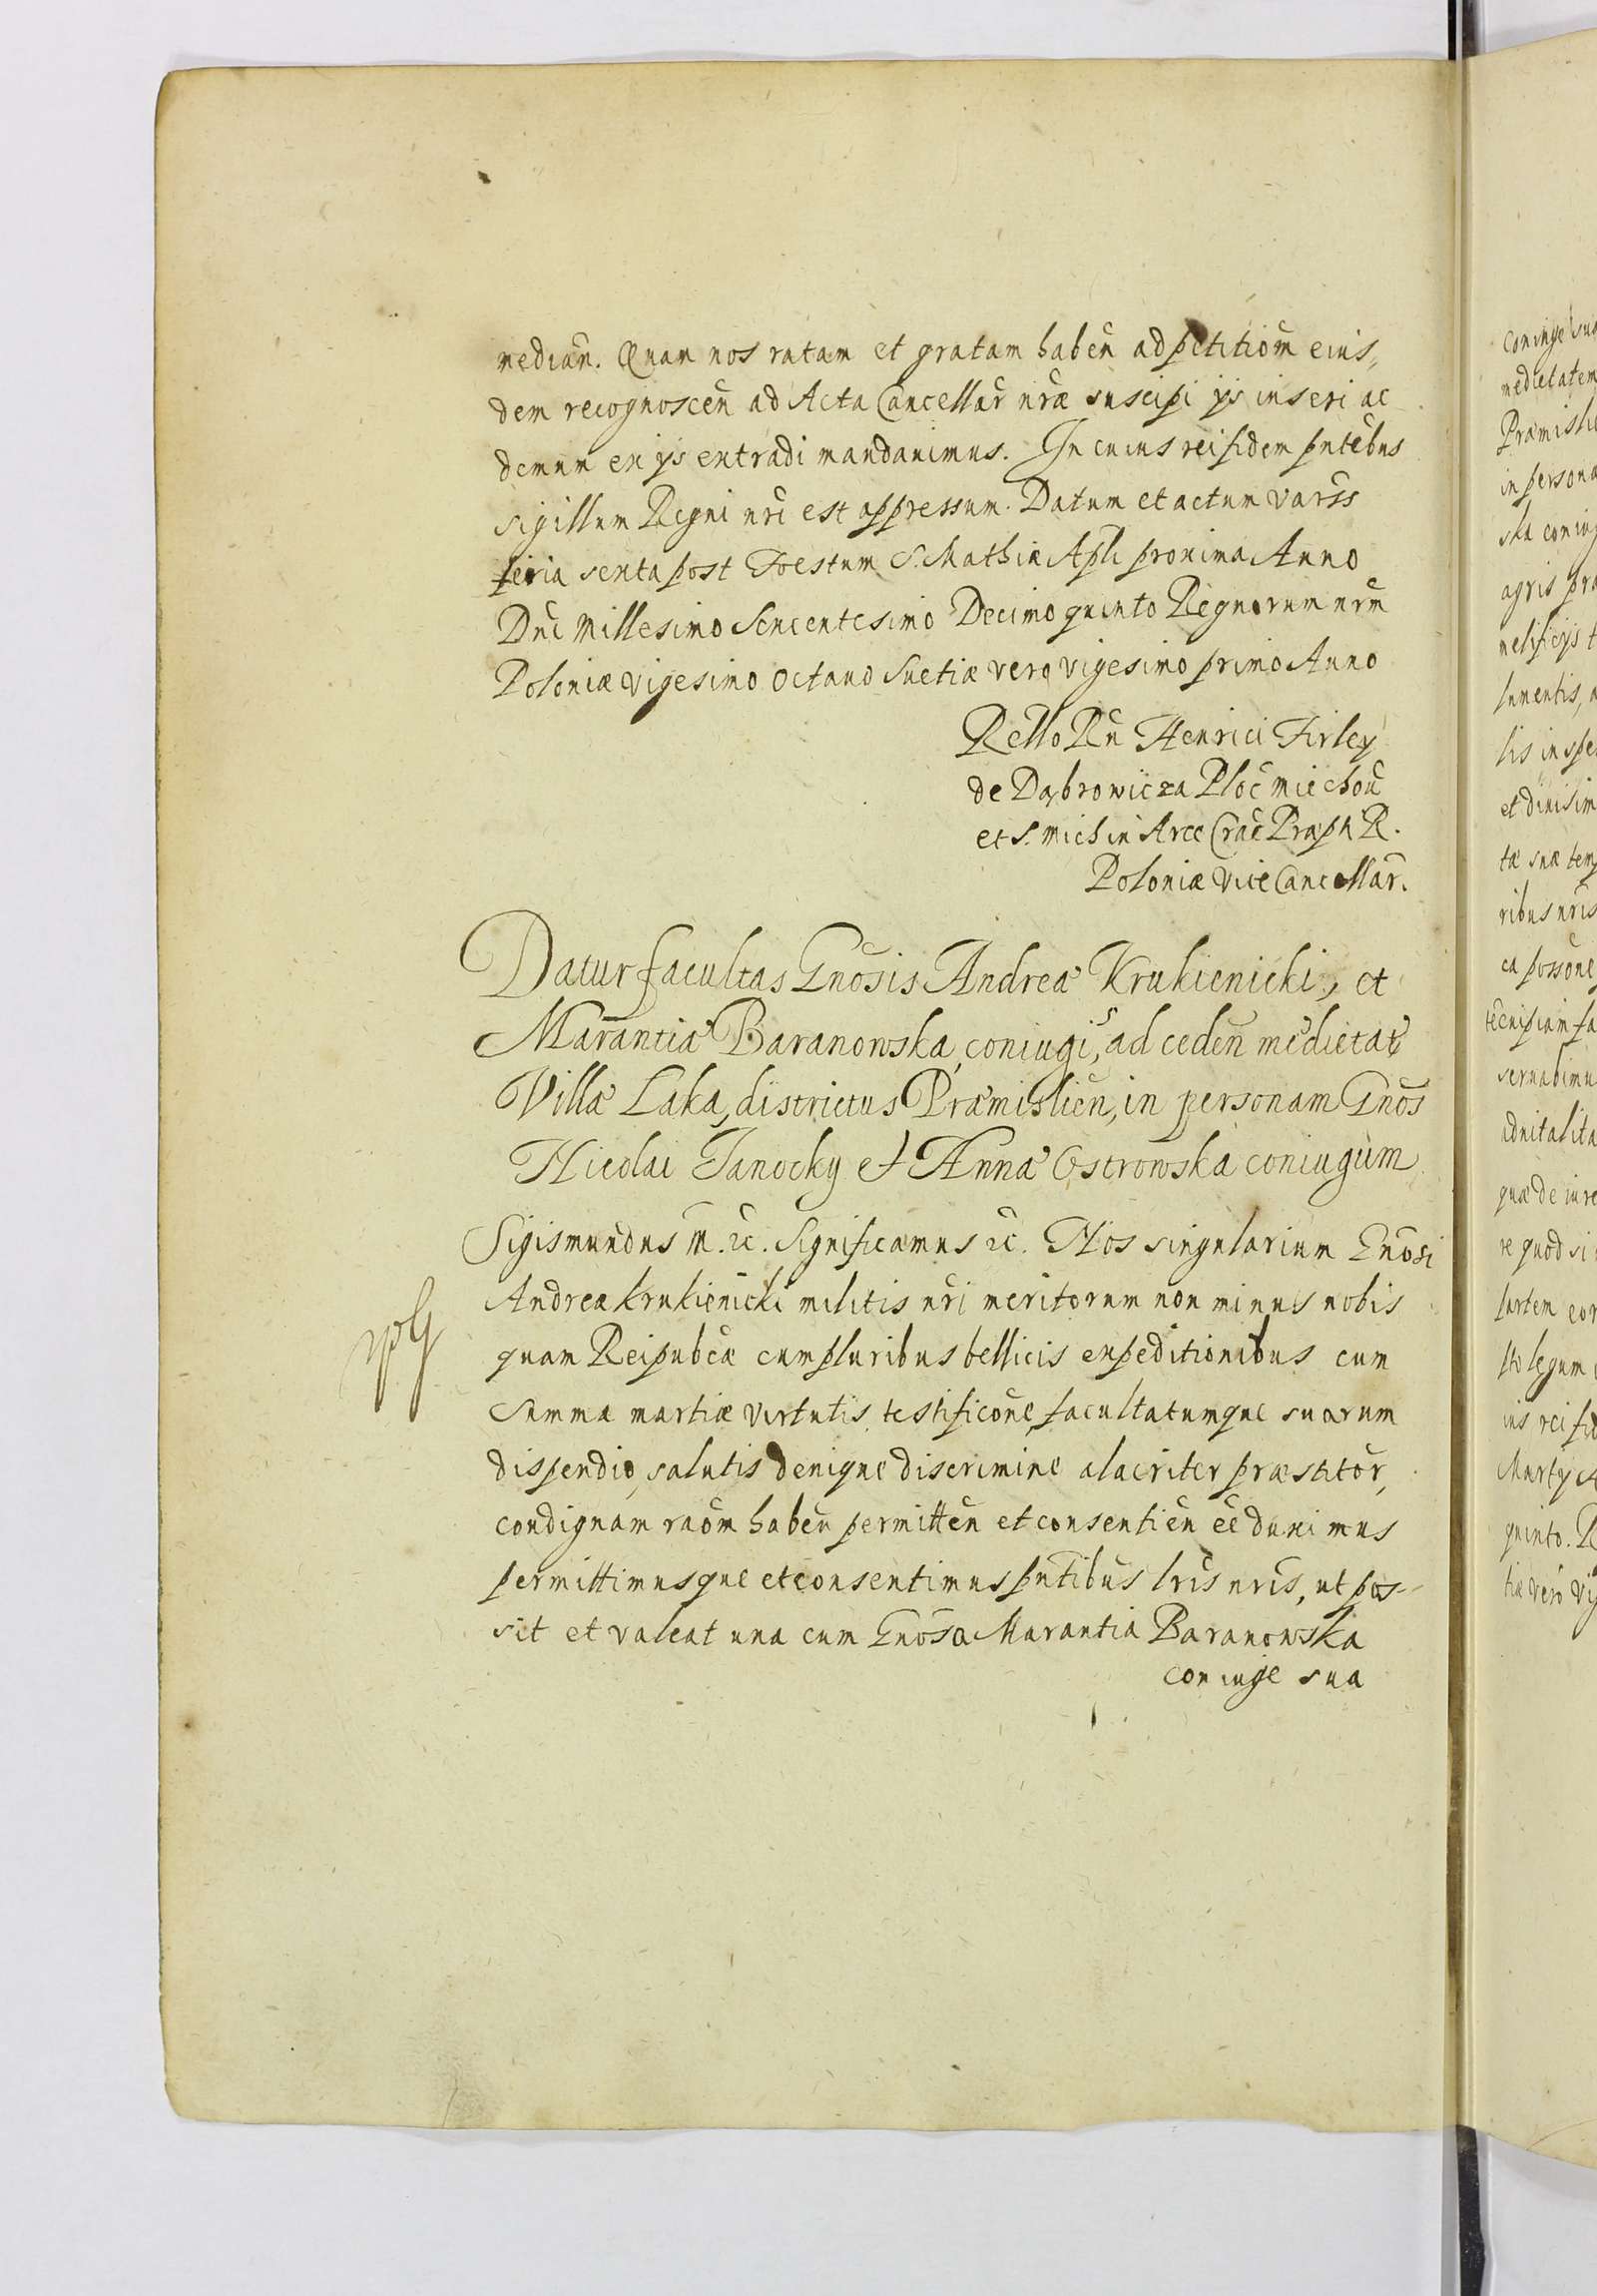 mediam̃. Quam nos ratam et gratam habeñ ad petitiom̃ eius„
dem recognosceñ ad Acta Cancellar̃ nrã suscipi ijs inseri ac
demum ex ijs extradi mandauimus. In cuius rei fidem pntẽbus
sigillum Regni nrĩ est appressum. Datum et actum Varss̃
feria sexta post Foestum S. Mathiæ Apłi proxima Anno
Dnĩ Millesimo Sexcentesimo Decimo quinto Regnorum nrm̃
Poloniæ Vigesimo Octauo Suetiæ vero vigesimo primo Anno
Rello Rñ Henrici Firley
de Dąbrowicza Ploc̃ miechou̅
et S. Mich in Arce Crac̃ Præpti R.
Poloniæ Vice Cancellar̃.
Datur facultas Gnõsis Andreæ Krukienicki, et
Marantiæ Baranowska, coniugis, ad cedeñ medietatẽ
Villæ Łąka, districtus Præmislieñ, in personam Gnõs
Nicolai Janocky et Annæ Ostrowska coniugum
Sigismundus III. &c. Significamus &c. Nos singularium Gnõsi
Andreæ Krukienicki militis nrĩ meritorum non minus nobis
quam Reipubcæ cum pluribus bellicis expeditionibus cum
summa martiæ virtutis testificone, facultatumque suarum
dispendio, salutis denique discrimine alacriter præstitor̃,
condignam raom̃ habeñ permitteñ et consentieñ eẽ duximus
permittimusque et consentimus pntĩbus lrĩs nrĩs, ut pos-
sit et valeat una cum Gnõsa Marantia Baranowska
coniuge sua
coniuge sua
medietatem
Præmisli
in persona
ska coniug
agris pra
melificijs
lumentis, a
lis in spe
et diuisim
tæ suæ tem
ribus nrĩs
ca possone
seruabimu
aduitalita
quæ de iure
re quod si
sortem eor
sto legum
ius rei fid
Martij A
quinto. R
tiæ vero Vi